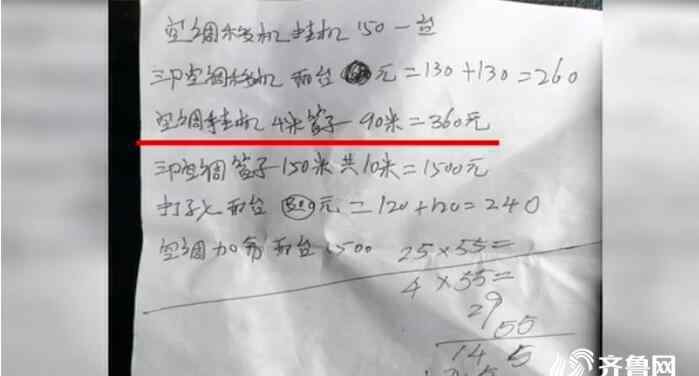 空调移机挂机150一台
空调移机 两台 元=130+130=260
空调挂机 4米管子一90米=360元
空调管子150米共10米=1500元
打孔 两台 元=120+120=240
空调加氟两台 500
25×55=
4×55=
29
55
14 5
齐鲁网